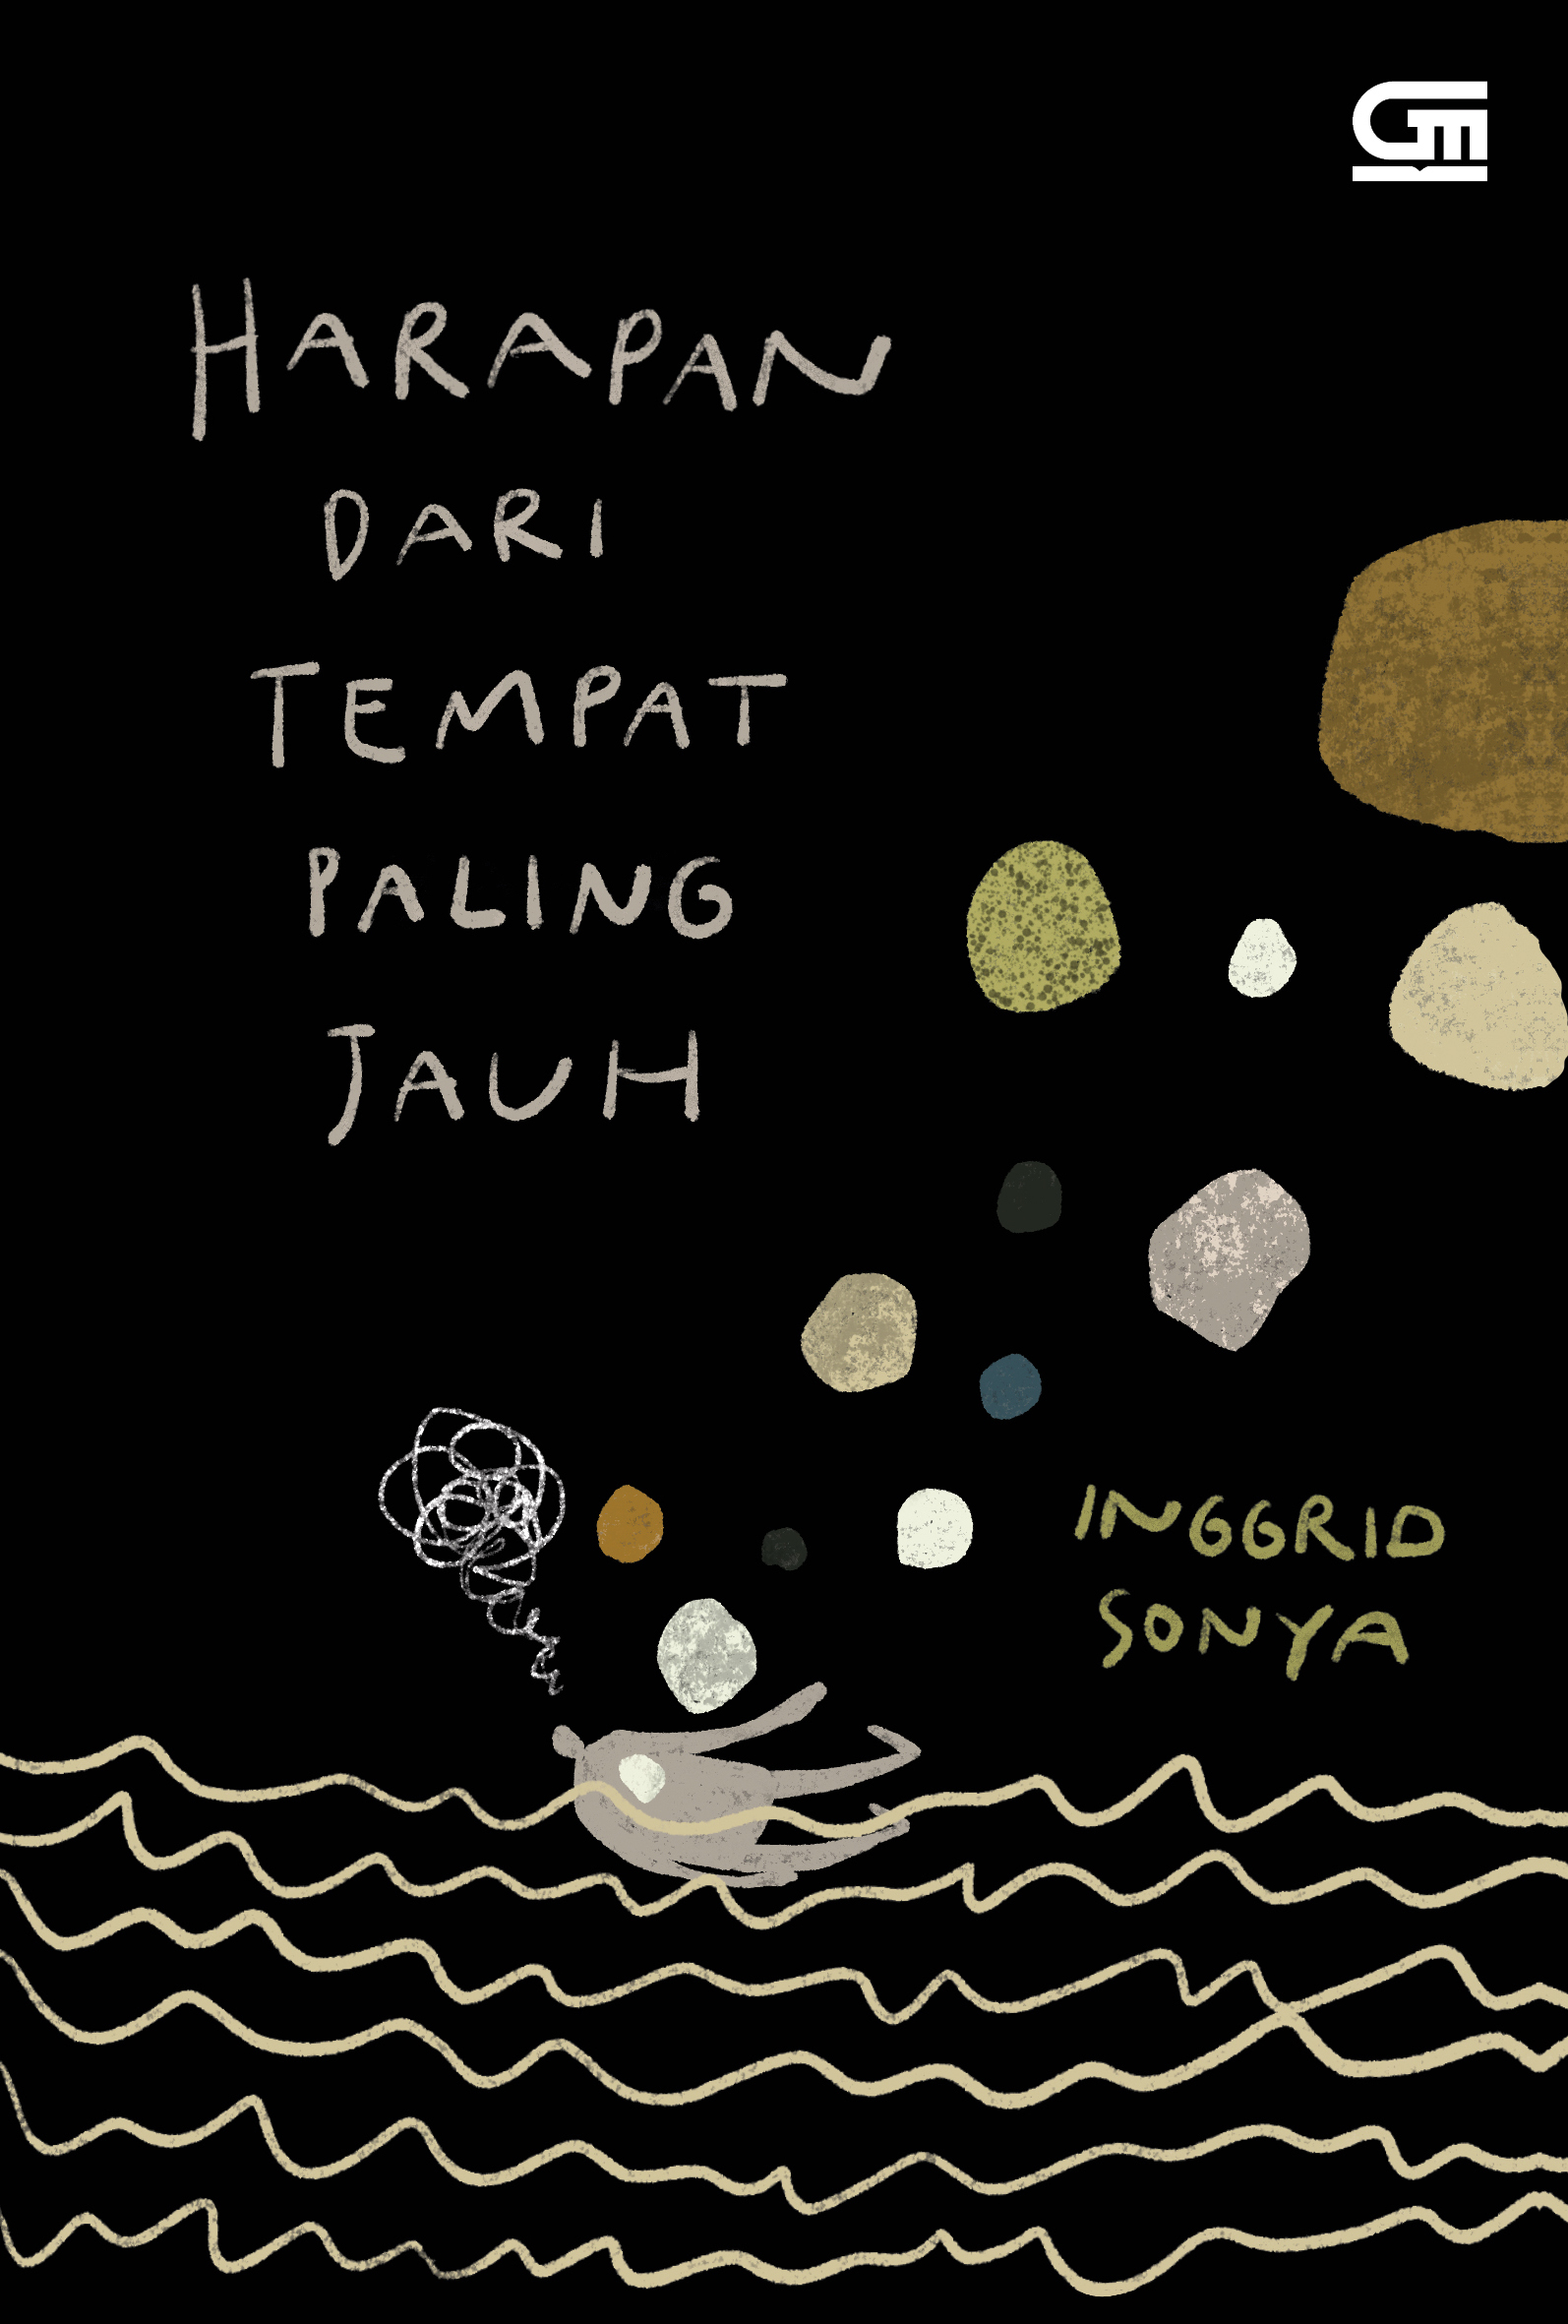 Gm
HARAPAN
DARI
TEMPAT
PALING
JAUH
INGGRID
SONYA